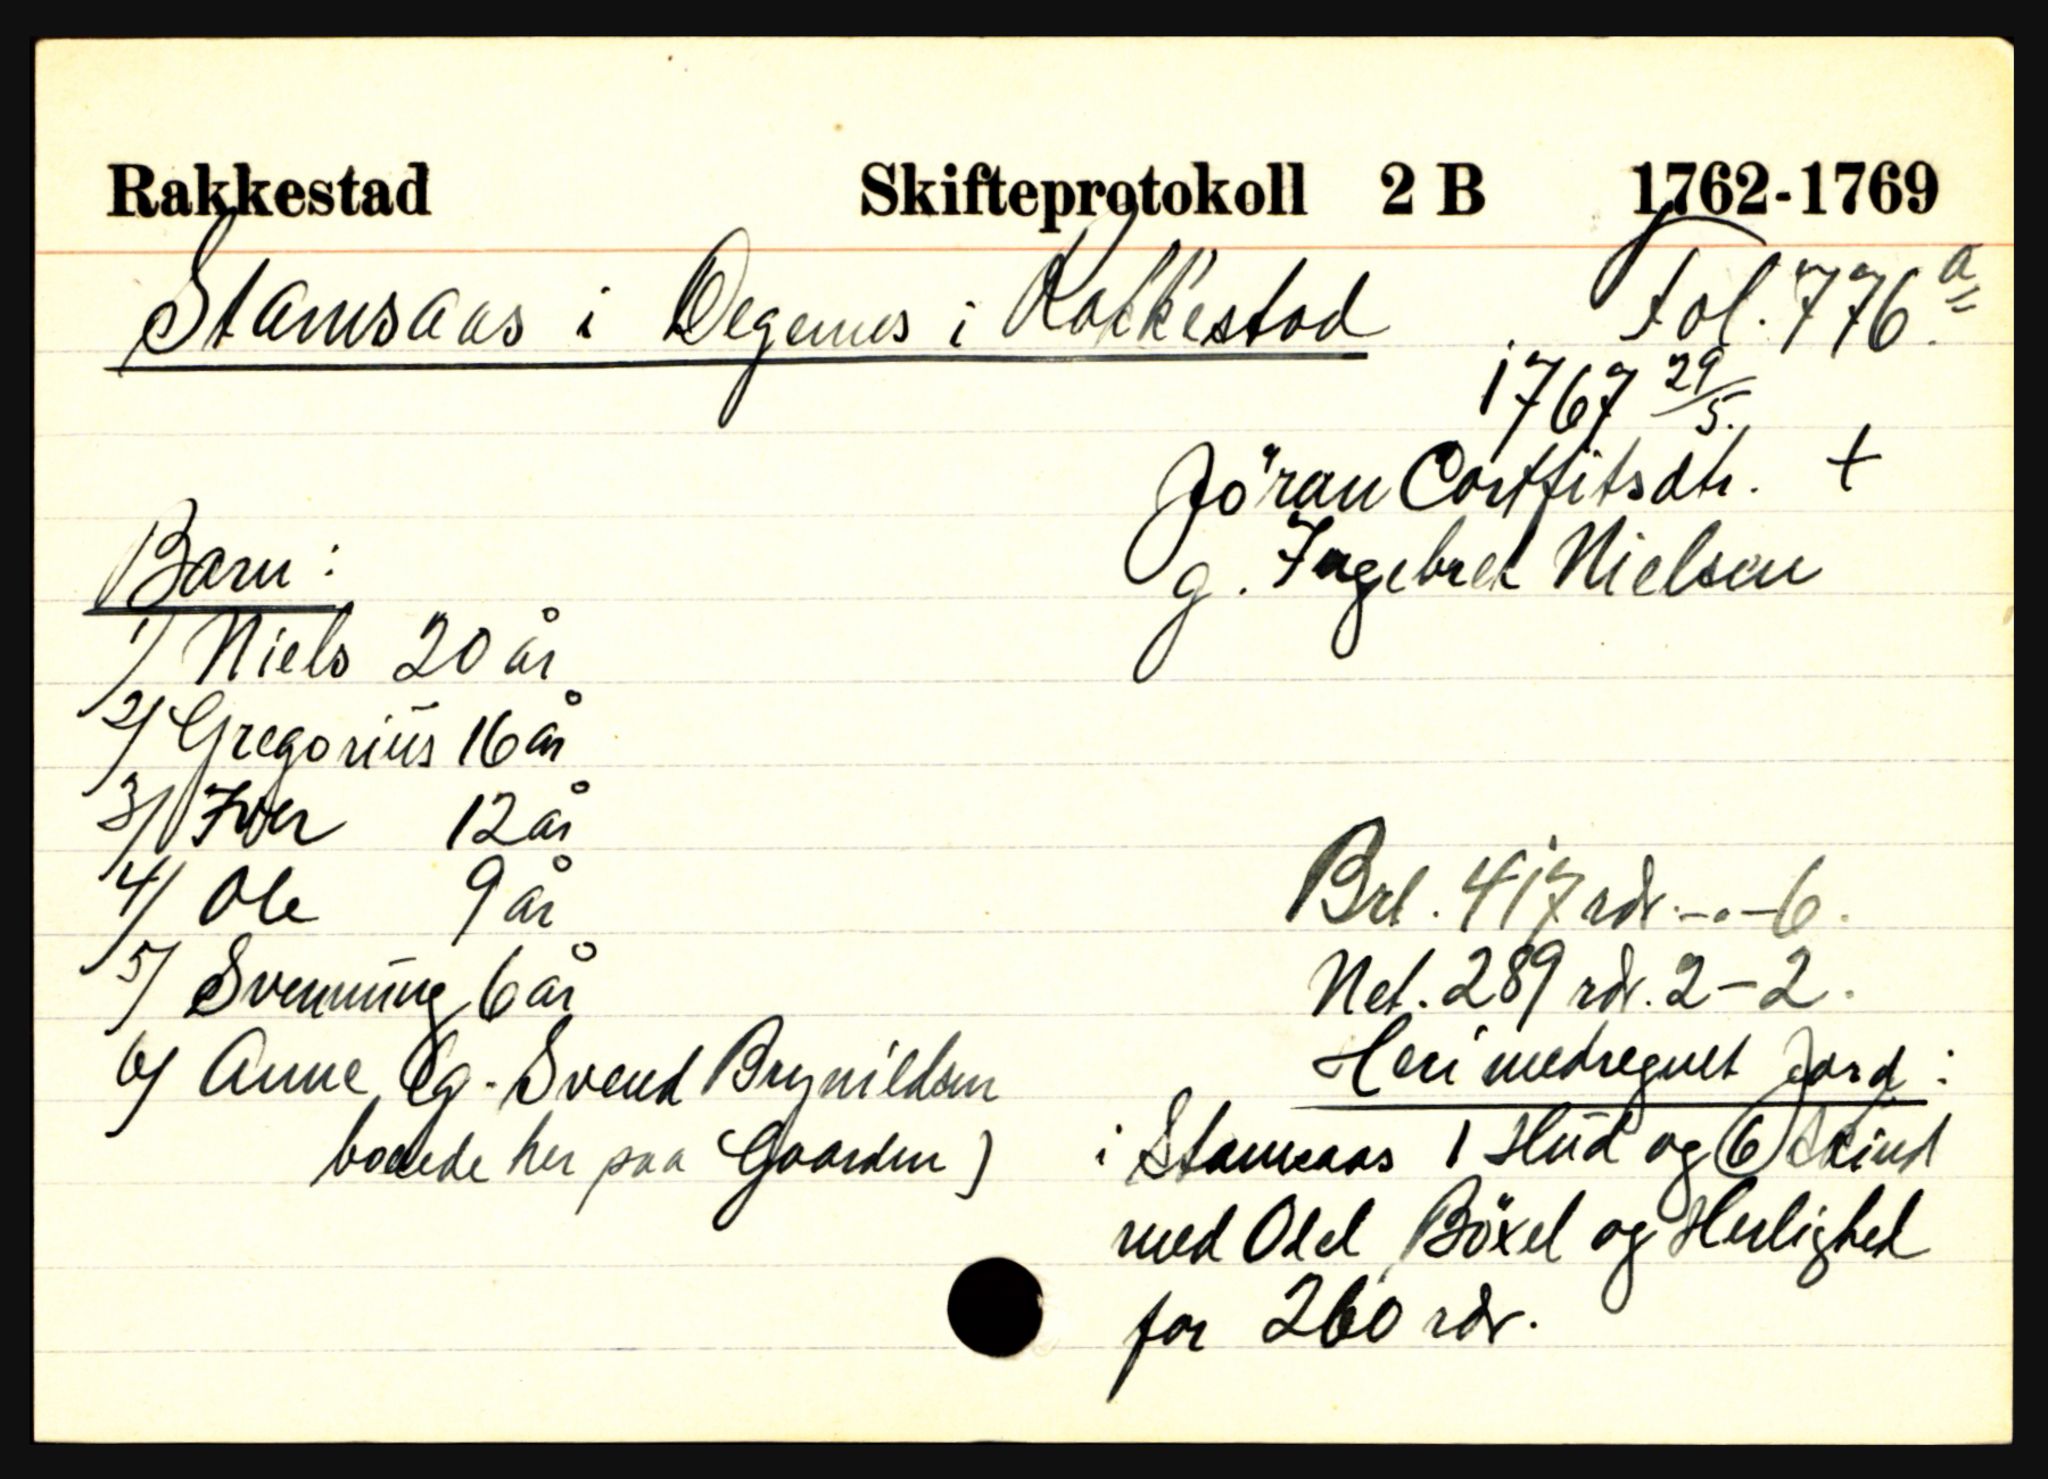 Rakkestad Skifteprotokoll 2 B 1762-1769
Stamsaas i Degernes i Rakkestad Fol. 776 a
1767 29/5.
Jöran Corsfitsdtr. +
g. Ingebret Nielsen
Barn:
1) Niels 20 år
2) Gregorius 16 år
3) Iver 12 år
4) Ole 9 år
5) Svenning 6 år
6) Anne (g. Svend Brynildsen
boende her paa Gaarden)
Brt. 417 rdr. -.- 6.
Net. 289 rdr. 2-2.
Heri medregnet Jord:
i Stamsaas 1 Hud og 6 Skind
med Odel Böxel og Herlighed
for 260 rdr.